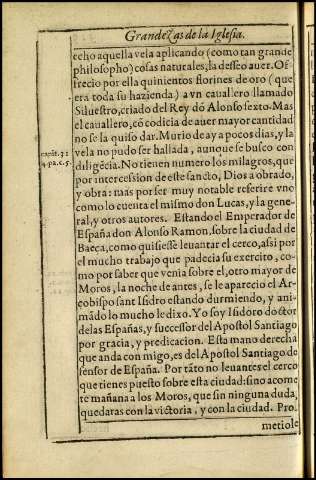 Grandezas de la Iglesia.
echo aquella vela aplicando (como tan grande
philosopho) cosas naturales, la desseo auer. Of-
frecio por ella quinientos florines de oro (que
era toda su hazienda) a vn cauallero llamado
Siluestro, criado del Rey dō Alonso sexto. Mas
el cauallero, cō codicia de auer mayor cantidad
no se la quiso dar. Murio de ay a pocos dias, y la
vela no pudo ser hallada, aunque se busco con
diligēcia. No tienen numero los milagros, que
por intercession de este sancto, Dios a obrado,
y obra: mas por ser muy notable referire vno
como lo cuenta el mismo don Lucas, y la gene-
ral, y otros autores. Estando el Emperador de
España don Alonso Ramon, sobre la ciudad de
Baeça, como quisiesse leuantar el cerco, assi por
el mucho trabajo que padecia su exercito, co-
mo por saber que venia sobre el, otro mayor de
Moros, la noche de antes, se le aparecio el Ar-
çobispo sant Isidro estando durmiendo, y ani-
mādo lo mucho le dixo. Yo soy Isidoro doctor
delas Españas, y successor del Apostol Santiago
por gracia, y predicacion. Esta mano derecha
que anda con migo, es del Apostol Santiago de
fensor de España. Por tāto no leuantes el cerco
que tienes puesto sobre esta ciudad: sino acome
te mañana a los Moros, que sin ninguna duda,
quedaras con la victoria, y con la ciudad. Pro-
metiole
4. pa. c. 5.